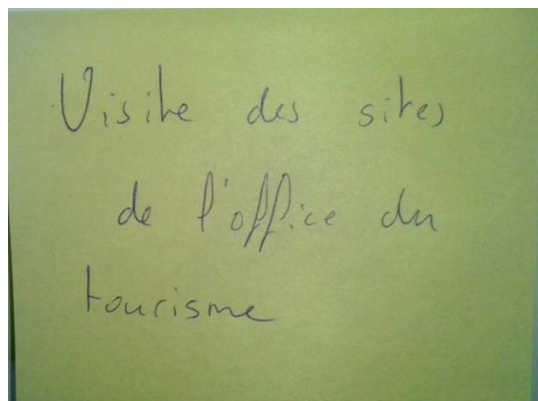 Visite des sites
de l'office du
tourisme